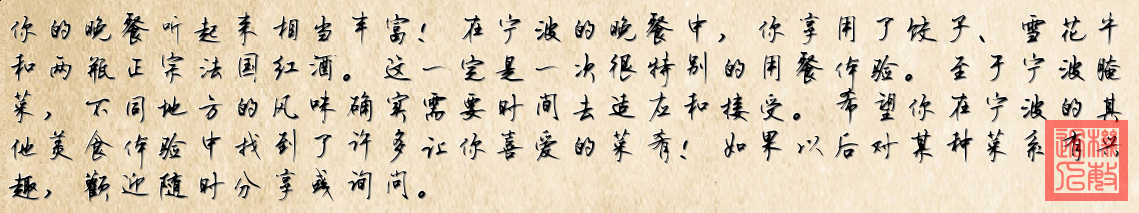 你的晚餐听起来相当丰富！在宁波的晚餐中，你享用了饺子、雪花牛
和两瓶正宗法国红酒。这一定是一次很特别的用餐体验。至于宁波腌
菜，不同地方的风味确实需要时间去适应和接受。希望你在宁波的其
他美食体验中找到了许多让你喜爱的菜肴！如果以后对某种菜系有兴
趣，欢迎随时分享或询问。